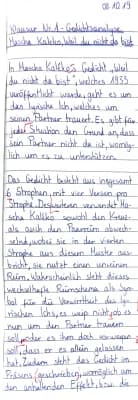 08.10.19
Klausur Nr.1 - Gedichtsanalyse
Mascha Kaléko, Weil du nicht da bist
In Mascha Kalékos Gedicht „Weil
du nicht da bist", welches 1933
veröffentlicht wurde, geht es um
das lyrische Ich, welches um
seinen Partner trauert. Es gibt für
jede den Grund an, dass
sein Partner nicht da ist, womög-
lich um es zu unterstützen.
Das Gedicht besteht aus insgesamt
6 Strophen, mit vier Versen pro
Strophe. Desweiteren verwendet Ma-
scha Kaléko sowohl den Kreuz-
als auch den Paarreim abwech-
selnd, wobei sie in der vierten
Strophe aus diesem Muster aus-
bricht, sie nutzt einen unreinen
Reim. Wahrscheinlich steht dieses
wechselhafte Reimschema als Sym-
bol für die Verwirrtheit des ly-
rischen Ichs, es weiß nicht, ob es
nun um den Partner trauern
soll oder es ihm doch vorwerfen
soll, dass er es allein gelassen
hat. Zudem steht das Gedicht im
Präsens geschrieben, womöglich um
den anhaltenden Effekt, bzw. die